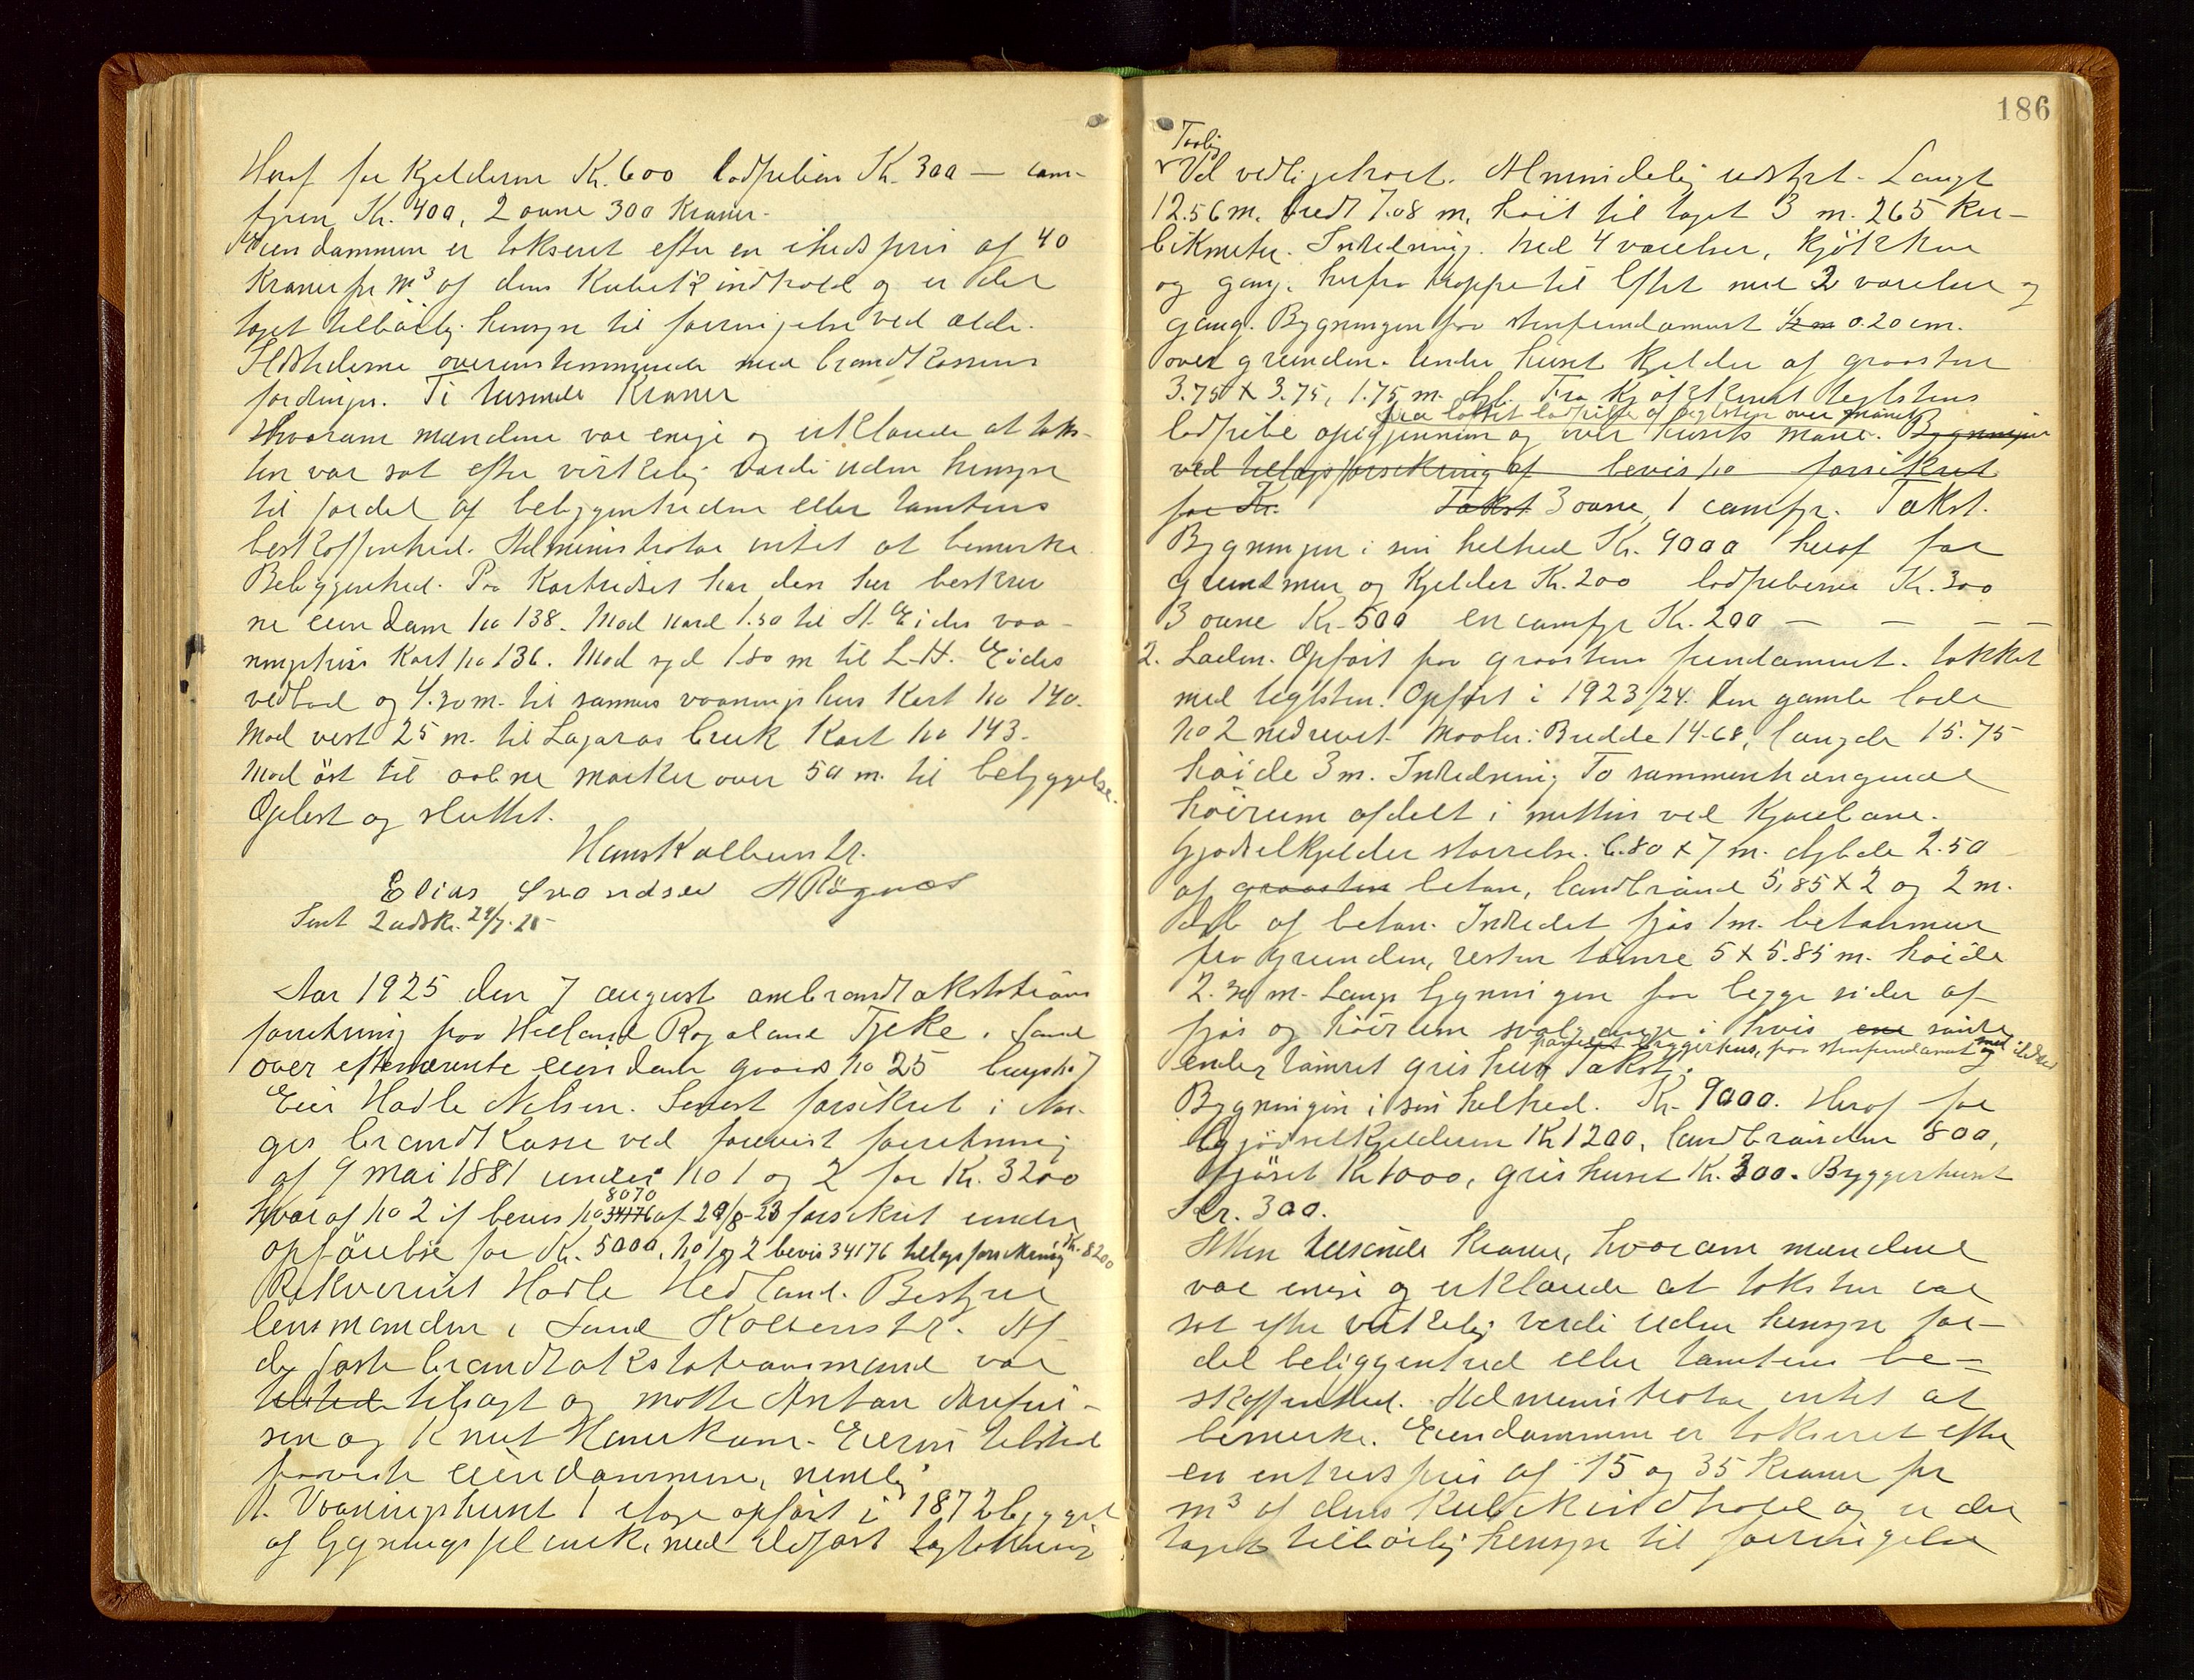 Heraf for Kjelderen Kr. 600 lodpiben Kr. 300 — com-
fyren Kr. 400, 2 ovne 300 Kroner.
Eiendommen er takseret efter en enhedspris af 40
Kroner pr m³ af dens Kubikindhold og er der
taget tilbörlig hensyn til forringelse ved ælde.
Ildstederne overensstemmende med brandkassens
fordringer. Ti tusende Kroner
Hvorom mændene var enige og erklærede at taks-
ten var sat efter virkelig værdi uden hensyn
til fordel af beliggenheden eller tomtens
beskaffenhed. Administrator intet at bemerke.
Beliggenhed. Paa Kartridset har den her beskrev
ne eiendom no 138. Mod nord 1.50 til A. Eides vaa-
ningshus Kart no 136. Mod syd 1.80 m til L. H. Eides
vedbod og 4.30 m. til sammes vaaningshus Kart no 140.
Mod vest 25 m. til Lagaros bruk Kart no 143.
Mod öst til aabne marker over 50 m. til bebyggelse.
Oplest og sluttet.
Hans Kolbenstr.
Elias Svendsen A Rögnes
Sent 2 udskr. 24/7-25
Aar 1925 den 7 august ombrandtakstations
forretning paa Hedland Rogaland Fylke i Sand
over efternævnte eiendom gaards no 25 bruks no 7
Eier Hadle Nilsen. Senest forsikret i Nor-
ges brandkasse ved forevist forretning
af 9 mai 1881 under no 1 og 2 for Kr. 3200
8070
hvoraf no 2 if bevis no 34176 af 29/8-23 forsikret under
opförelse for Kr. 5000. no 1 og 2 bevis 34176 tillægsforsikring Kr. 8200
Rekvirent Hadle Hedland. Bestyrer
lensmanden i Sand Kolbenstr. Af
de faste brandtakstationsmænd var
tilsted tilsagt og mötte Anton
sen og Knut Hanekam. Eieren tilsted
paaviste eiendommen, nemlig
1. Vaaningshuset 1 etage opfört i 1872 bygget
af bygningsplank, med ildfast tagtækning
186
Taalig
Vel vedligeholdt. Almindelig udstyrt. Langt
12.56 m. bredt 7.08 m, höit til taget 3 m. 265 ku-
bikmeter. Indredning. ned 4 værelser, kjökken
og gang. herfra trappe til loftet med 2 værelser og
gang. Bygningen paa stenfundament 1/2 m 0.20 cm.
over grunden. Under huset kjelder af graasten
3.75 X 3.75, 1.75 m. dyb. Fra kjökkenet teglstens
fra loftet lodpibe af teglsten over mönet
lodpibe opigjennem og over husets möne. Bygningen
ved tillægsforsikring af bevis no forsikret
for Kr. Takst 3 ovne, 1 comfyr. Takst.
Bygningen i sin helhed Kr. 9000 heraf for
grundmur og Kjelder Kr. 200 lodpiberne Kr. 300
3 ovne Kr. 500 en comfyr Kr. 200 — — — —
2. Laden. Opfört paa graastens fundament. takket
med teglsten. Opfört i 1923/24. Den gamle lade
no 2 nedrevet. Maaler: Bredde 14.68, længde 15.75
höide 3 m. Indredning To sammenhængende
höirum afdelt i midten ved Kjörebane.
Gjödselkjelder störrelse 6.80 X 7 m. dybde 2.50
af graasten beton, landbrönd 5,85 X 2 og 2 m.
dyb af beton. Indredet fjös 1 m. betonmur
fra grunden, resten tömre 5 X 5.85 m. höide
2. m. Langs bygningen paa begge sider af
fjös og höirum svalgange i hvis ene söndre
paa stenfundament og med ildsted
ender tömret grishus Takst.
Bygningen i sin helhed. Kr. 9000. Heraf for
Gjödselkjelderen Kr 1200, landbrönden 800,
fjöset Kr 1000, grishuset Kr. 300. Bryggerhuset
Kr. 300.
Atten tusende kroner, hvorom mændene
var enige og erklærede at taksten var
sat efter virkelig verdi uden hensyn for-
del beliggenhed eller tomtens be-
skaffenhed. Administrator intet at
bemerke. Eiendommen er takseret efter
en enhedspris af 15 og 35 Kroner pr
m³ af dens Kubikindhold og er der
taget tilbörlig hensyn til forringelse